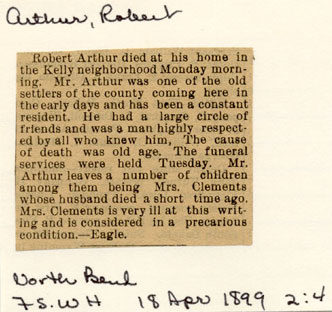 Arthur, Robert
Robert Arthur died at his home in
the Kelly neighborhood Monday morn-
ing. Mr. Arthur was one of the old
settlers of the county coming here in
the early days and has been a constant
resident. He had a large circle of
friends and was a man highly respect-
ed by all who knew him, The cause
of death was old age. The funeral
services were held Tuesday. Mr.
Arthur leaves a number of children
among them being Mrs. Clements
whose husband died a short time ago.
Mrs. Clements is very ill at this writ-
ing and is considered in a precarious
condition.—Eagle.
North Bend
7 S. W H 18 Apr 1899 2:4